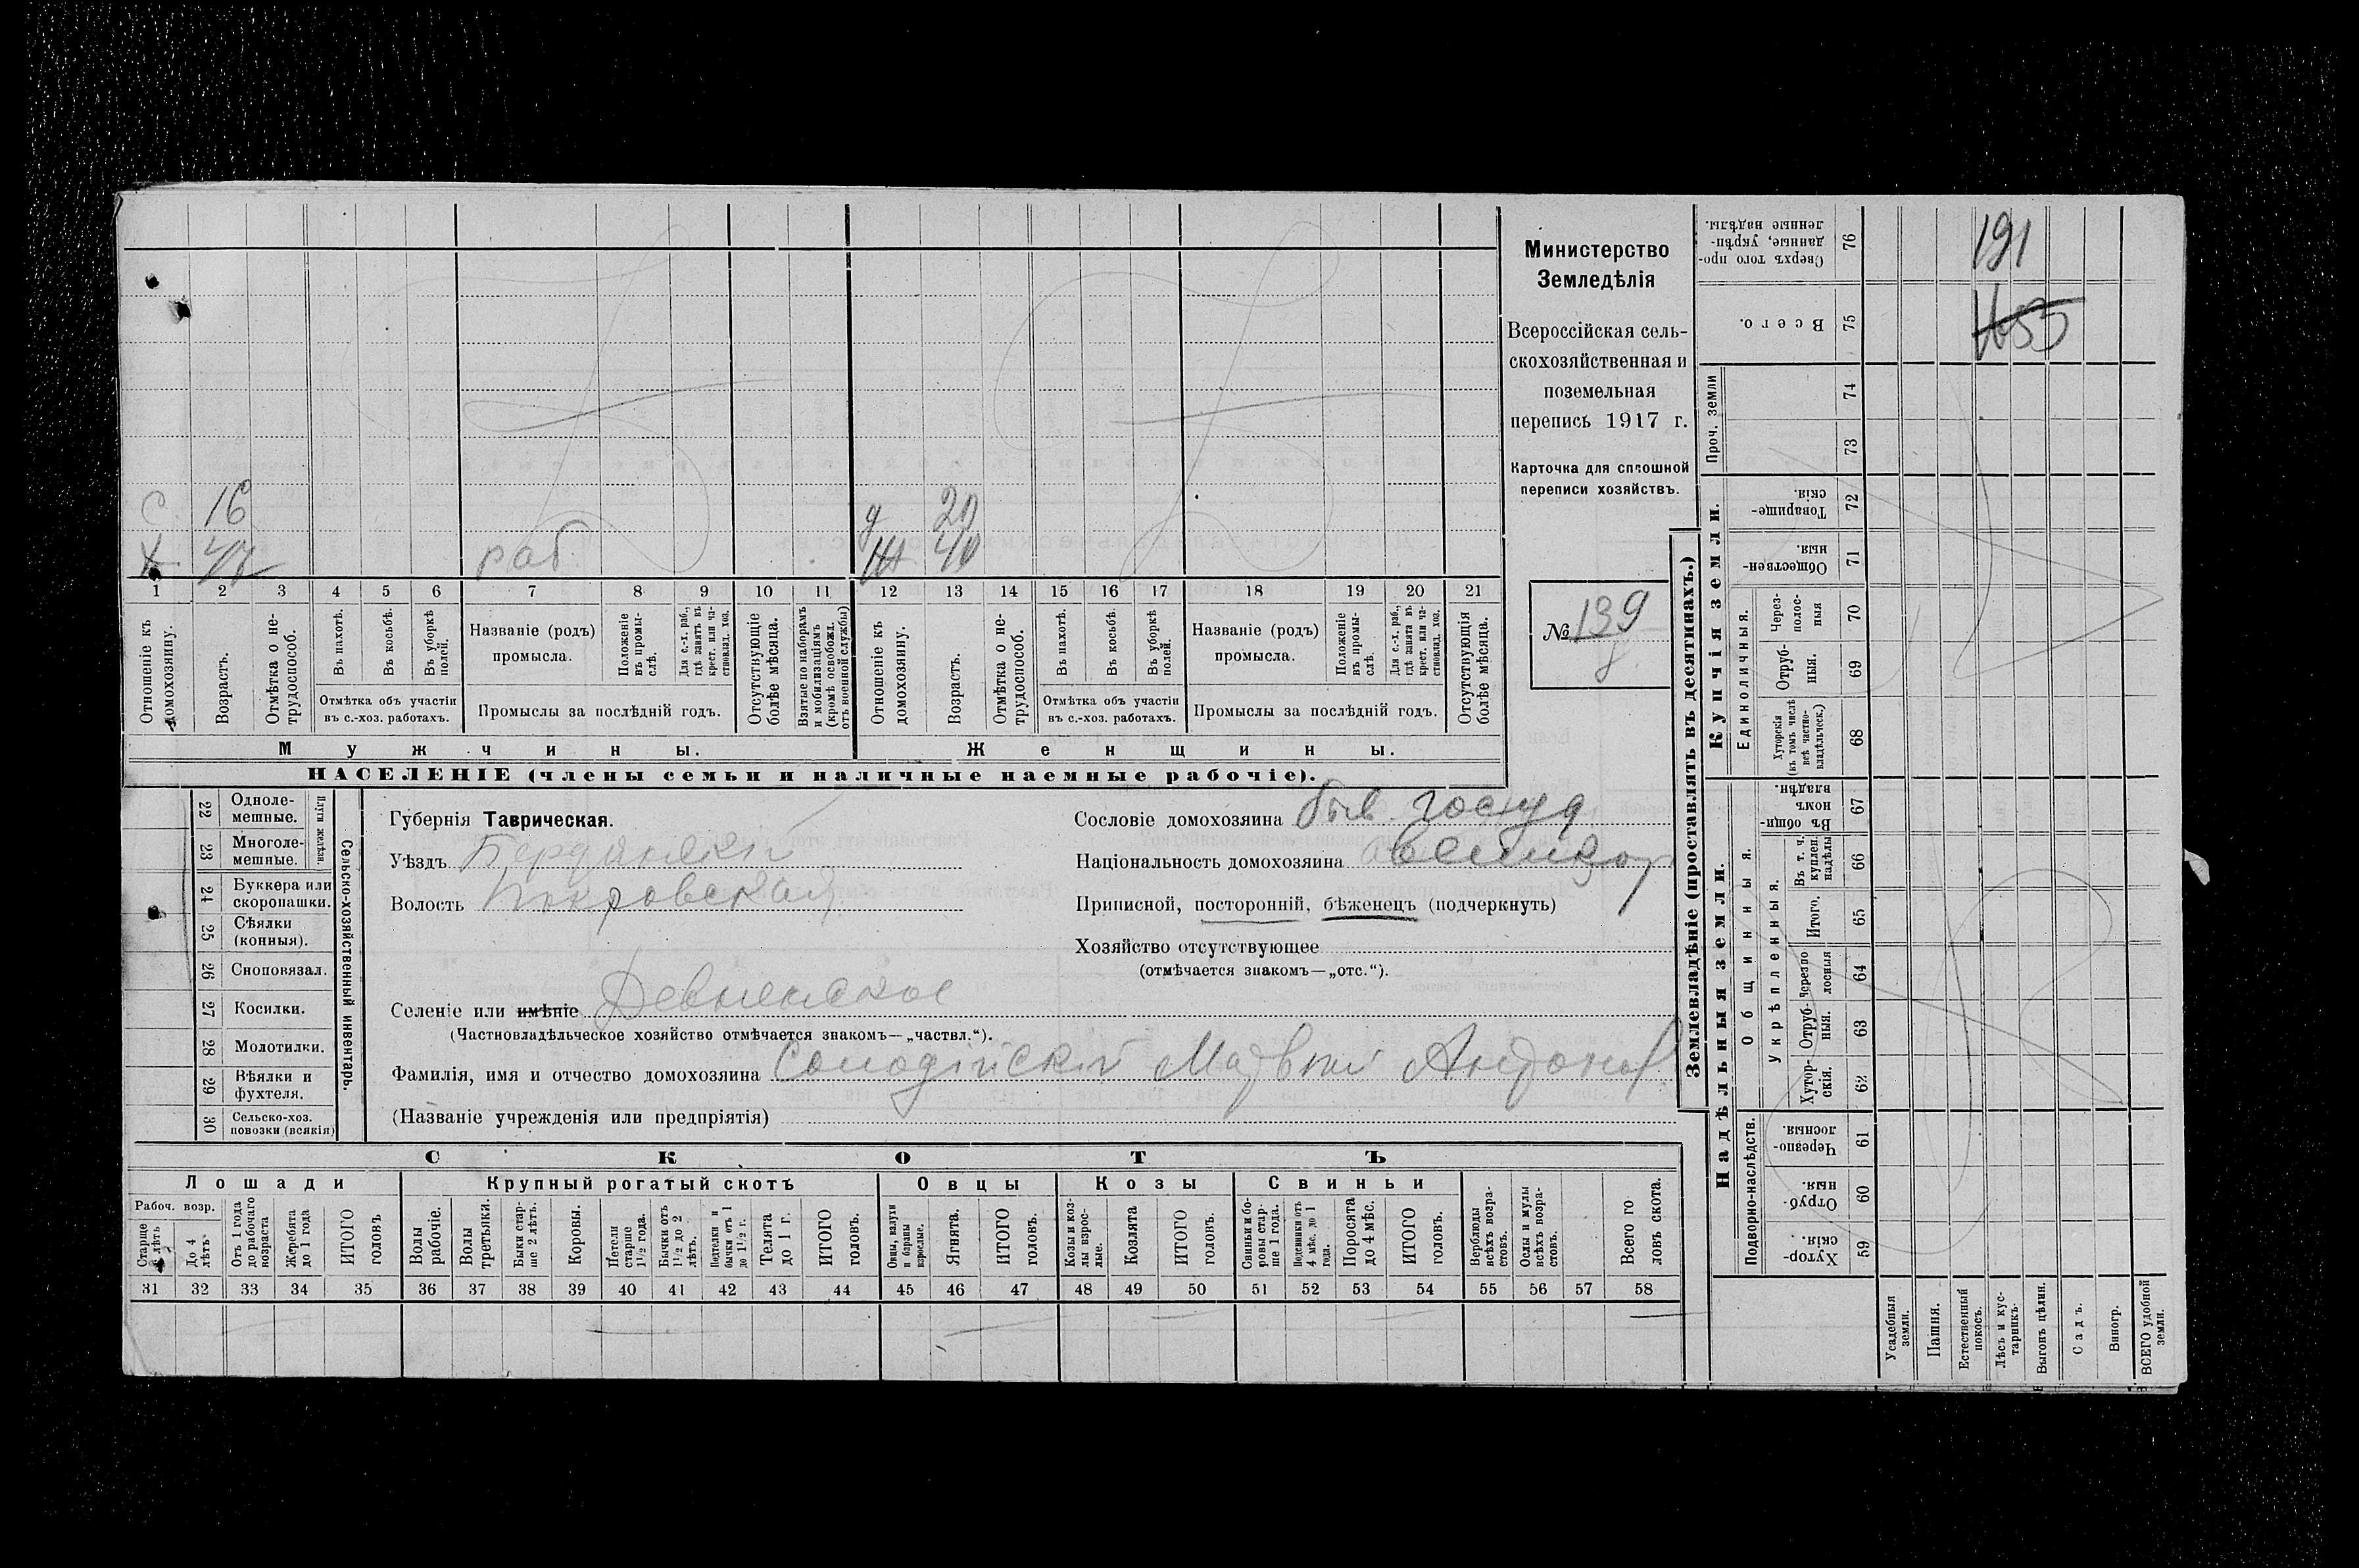 С 16 д 20
Х 47 раб. Ж 40
1 2 3 4 5 6 7 8 9 10 11 12 13 14 15 16 17 18 19 20 21
Отношеніе къ домохозяину.
Возрастъ.
Отмѣтка о нетрудоспособ.
Въ пахотѣ.
Въ косьбѣ.
Въ уборкѣ полей.
Отмѣтка объ участіи
въ с.-хоз. работахъ.
Названіе (родъ)
промысла.
Положеніе въ промыслѣ.
Для с.-х. раб., гдѣ занятъ въ крест. или частновлад. хоз.
Промыслы за послѣдній годъ.
Отсутствующіе болѣе мѣсяца.
Взятые по наборамъ и мобилизаціямъ (кромѣ освобожд. отъ военной службы)
Отношеніе къ домохозяину.
Возрастъ.
Отмѣтка о нетрудоспособ.
Въ пахотѣ.
Въ косьбѣ.
Въ уборкѣ полей.
Отмѣтка объ участіи
въ с.-хоз. работахъ.
Названіе (родъ)
промысла.
Положеніе въ промыслѣ.
Для с.-х. раб., гдѣ занята въ крест. или частновлад. хоз.
Промыслы за послѣдній годъ.
Отсутствующія болѣе мѣсяца.
Мужчины. Женщины.
НАСЕЛЕНІЕ (члены семьи и наличные наемные рабочіе).
Министерство
Земледѣлія
Всероссійская сель-
скохозяйственная и
поземельная
перепись 1917 г.
Карточка для сплошной
переписи хозяйствъ.
№ 139
Сельско-хозяйственный инвентарь.
Плуги желѣзн.
22 Одноле-
мешные.
23 Многоле-
мешные.
24 Буккера или
скоропашки.
25 Сѣялки
(конныя).
26 Сноповязал.
27 Косилки.
28 Молотилки.
29 Вѣялки и
фухтеля.
30 Сельско-хоз.
повозки (всякія)
Губернія Таврическая.
Уѣздъ Бердянскій
Волость Покровская
Селеніе или имѣніе
(Частновладѣльческое хозяйство отмѣчается знакомъ—„частвл.“).
Фамилія, имя и отчество домохозяина Матвѣй Антонов
(Названіе учрежденія или предпріятія)
Сословіе домохозяина быв. госуд
Національность домохозяина
Приписной, посторонній, бѣженецъ (подчеркнуть)
Хозяйство отсутствующее
(отмѣчается знакомъ—„отс.“).
СКОТЪ
Лошади
Рабоч. возр.
Старше 4 лѣтъ
До 4 лѣтъ
Отъ 1 года до рабочаго возраста
Жеребята до 1 года
ИТОГО головъ
Крупный рогатый скотъ
Волы рабочіе.
Волы третьяки.
Быки старше 2 лѣтъ.
Коровы.
Нетели старше 1½ года.
Бычки отъ 1½ до 2 лѣтъ.
Подтелки и бычки отъ 1 до 1½ г.
Телята до 1 г.
ИТОГО головъ.
Овцы
Овцы, валухи и бараны взрослые.
Ягнята.
ИТОГО головъ.
Козы
Козы и козлы взрослые.
Козлята
ИТОГО головъ.
Свиньи
Свиньи и боровы старше 1 года.
Подсвинки отъ 4 мѣс. до 1 года.
Поросята до 4 мѣс.
ИТОГО головъ.
Верблюды всѣхъ возрастовъ.
Ослы и мулы всѣхъ возрастовъ.
Всего головъ скота.
31 32 33 34 35 36 37 38 39 40 41 42 43 44 45 46 47 48 49 50 51 52 53 54 55 56 57 58
Землевладѣніе (проставлять въ десятинахъ.)
191
Сверхъ того проданные, укрѣпленные надѣлы. 76
Всего. 75
Проч. земли
74
73
Купчія земли.
Товарищескія. 72
Общественныя. 71
Единоличныя.
Черезполосныя 70
Отрубныя. 69
Хуторскія (въ томъ числѣ всѣ частновладѣльческ.) 68
Надѣльныя земли.
Общинныя.
Въ общинномъ владѣн. 67
Укрѣпленныя.
Въ т. ч. куплен. надѣлы 66
Итого. 65
Черезполосныя 64
Отрубныя. 63
Хуторскія. 62
Подворно-наслѣдств.
Черезполосныя. 61
Отрубныя. 60
Хуторскія. 59
Усадебныя земли.
Пашня.
Естественный покосъ.
Лѣсъ и кустарникъ.
Выгонъ цѣлин.
Садъ.
Виногр.
ВСЕГО удобной земли.